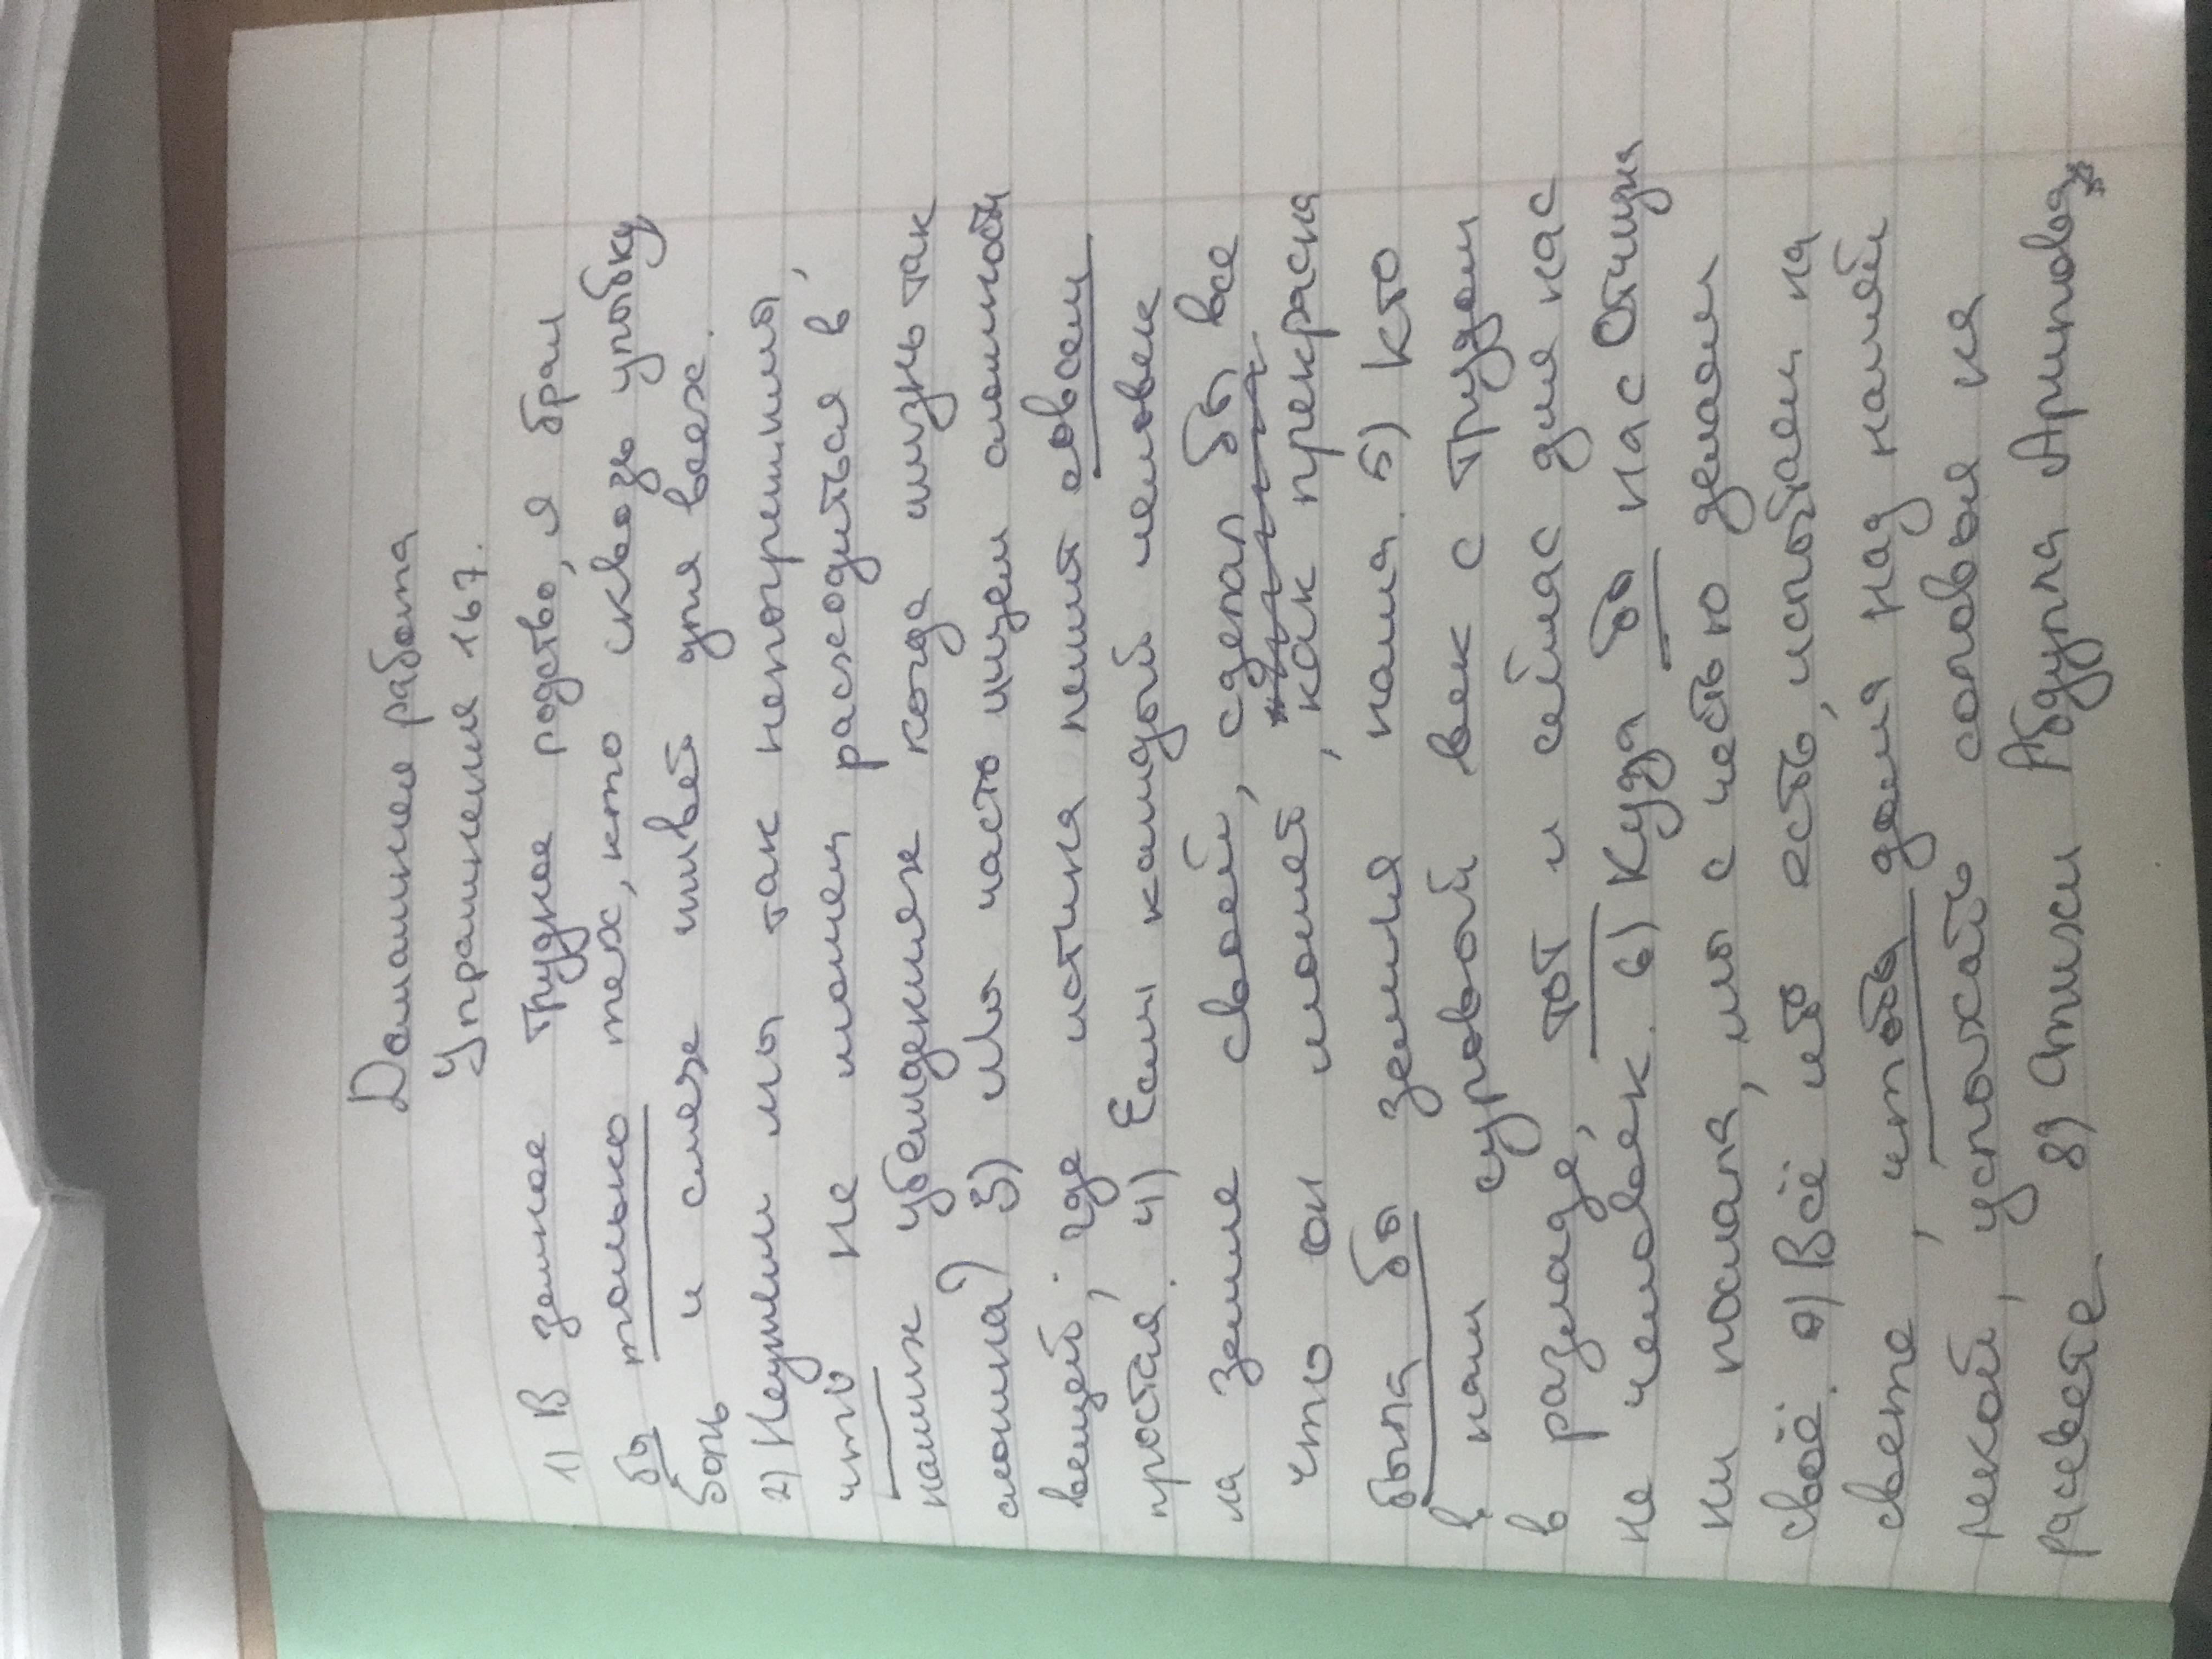 Домашнее работа
Упражнения 167.
1) В земное трудное родство, я брал
бы только тех, кто сквозь улыбку
боль и смех живёт для всех.
2) Неужели мы так непогрешимы,
что не можем расходиться в
наших убеждениях когда жизнь так
сложна? 3) Мы часто ищем сложности
вещей, где истина лежит совсем
простая. 4) Если каждый человек
на земле своей, сделал бы все
что он может, как прекрасна
была бы земля наша. 5) Кто
в наш суровый век с трудом
в разладе, тот и сейчас для нас
не человек. 6) Куда бы нас отчизна
ни послала, мы с честью делаем
своё. 7) Всё что есть, испытаем на
свете, чтобы дома над нашей
рекой, услыхать соловья на
рассвете. 8) Стихи Абдулла Арипова,